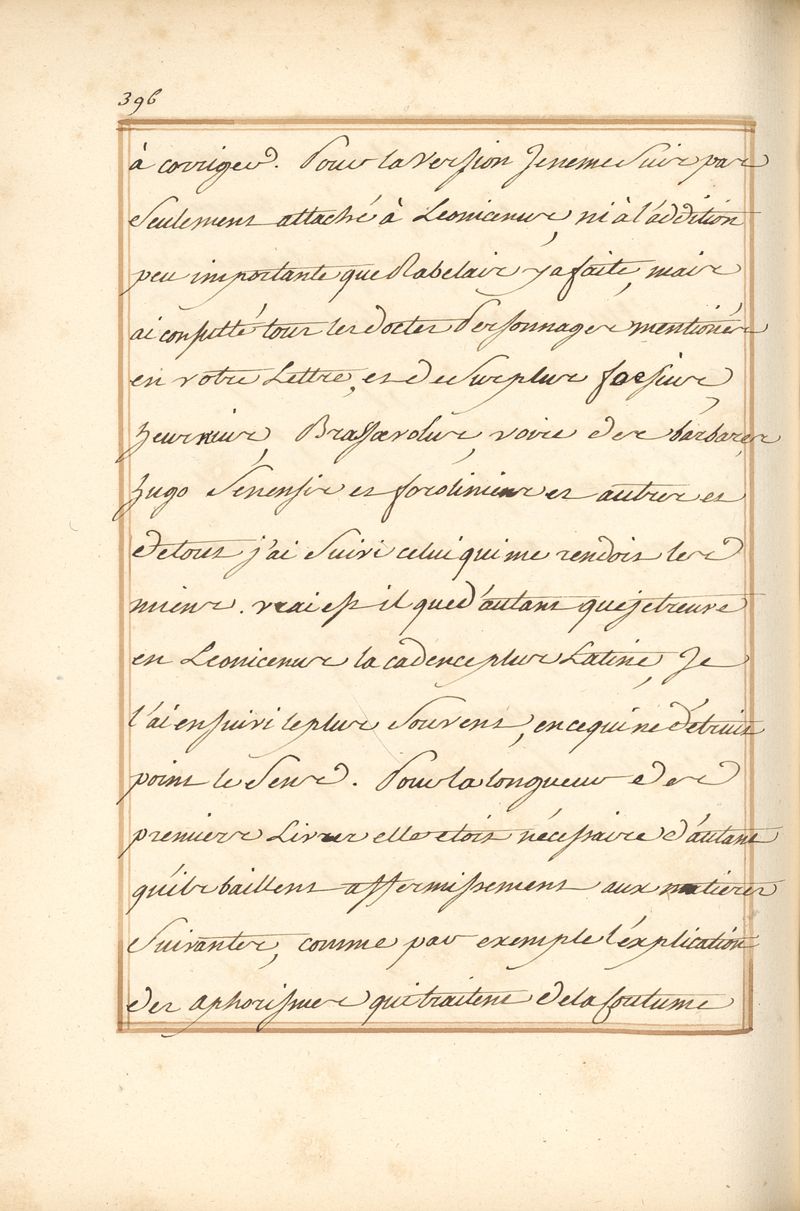 396
à corriger. Pour la Version Je ne me Suis pas
Seulement attaché à Leonicenus, ni à l'addition
peu importante que Rabelais y a faite, mais
ai consulté tous les doctes Personnages mentionés
en votre Lettre, et de Surplus foesius,
heurnius, Brassavolus, voire des barbares,
hugo Senensis et foroliniens et autres et
de tous j'ai Suivi celui qui me rendoit les
miens. vrai est il que d'autant que je treuve
en Leonicenus la cadence plus Latine, Je
l'ai ensuivi le plus Souvent, en ce qui ne détruit
point le Sens. Pour la longueur des
premiers Livres elle etoit nécessaire d'autant
qu'ils baillent affermissement aux matieres
Suivantes, comme par exemple l'éxplication
des aphorismes qui traitent de la Coutume